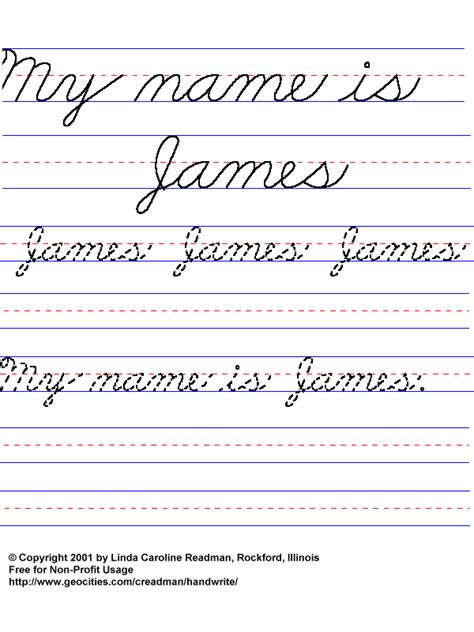 My name is
James
James James James
My name is James.
© Copyright 2001 by Linda Caroline Readman, Rockford, Illinois
Free for Non-Profit Usage
http://www.geocities.com/creadman/handwrite/